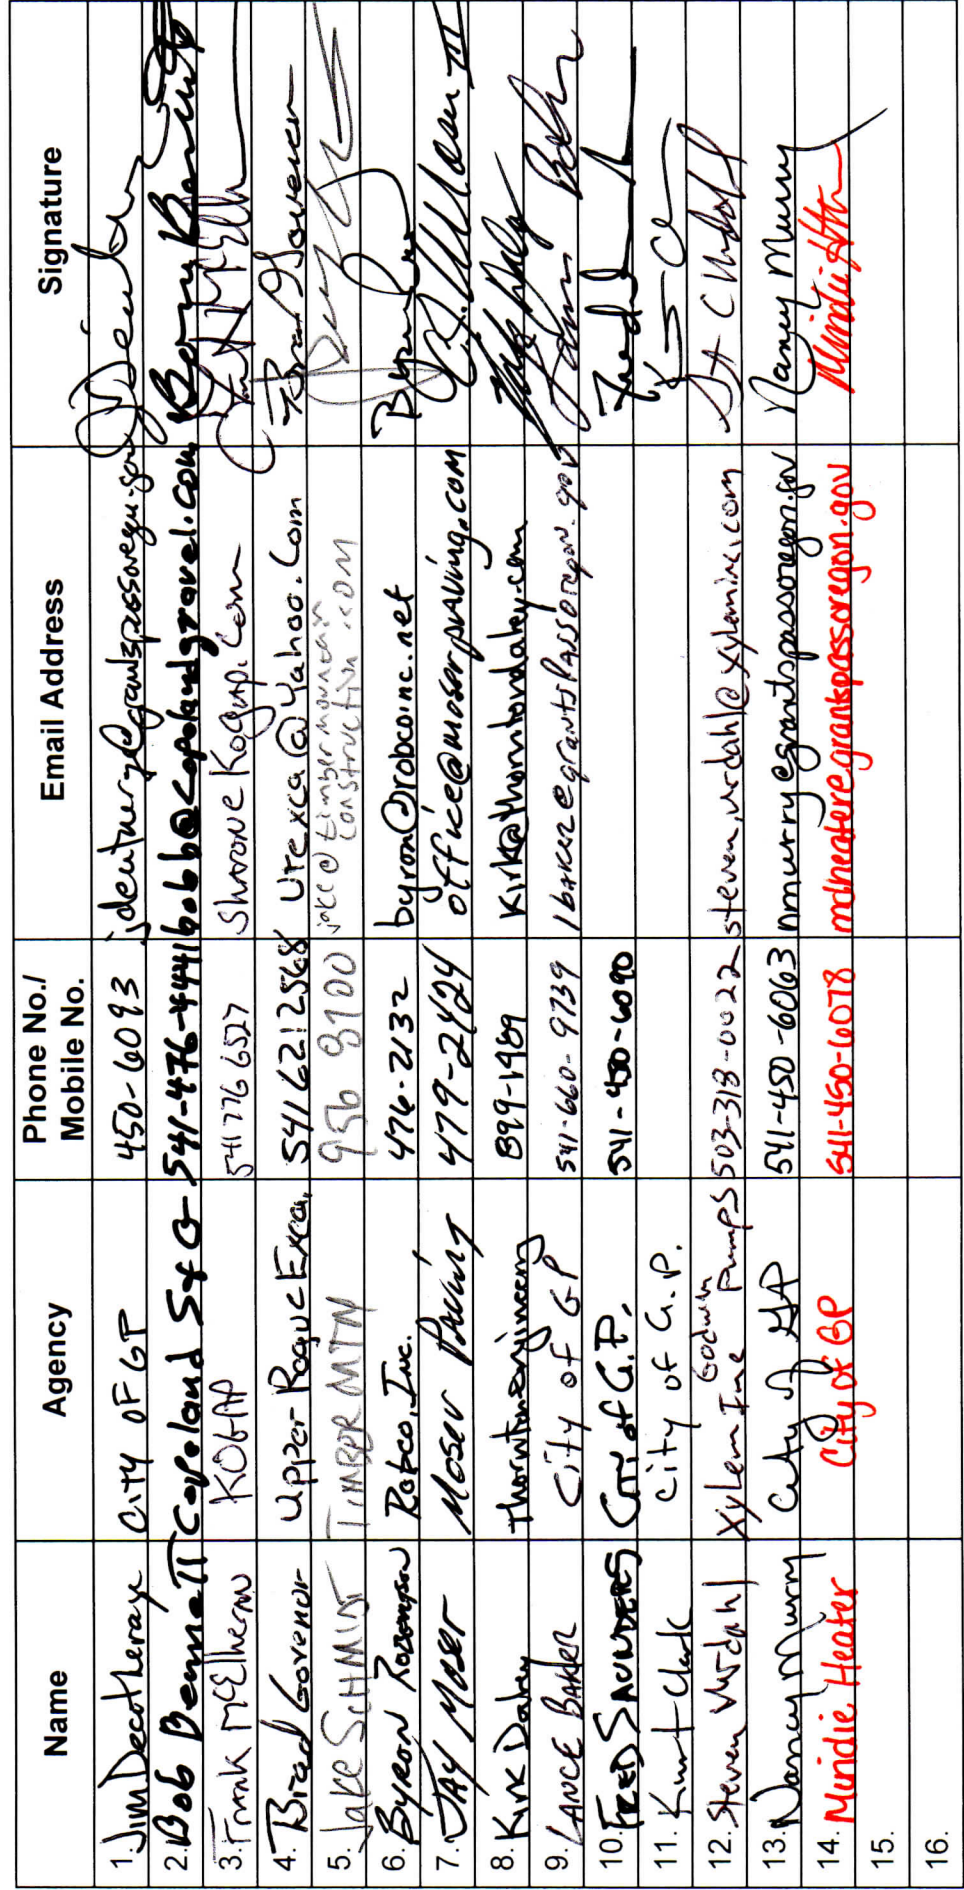 Name Agency Phone No./ Mobile No. Email Address Signature
1. Jim Decotheray CITY OF GP 450-6093
2. Bob Bennett Copeland S&G 541-476-4441 bobb@copelandgravel.com Bob Bennett
3. Frank McElheran KOGAP 541 776 6527
4. Brad Govenor Upper Rogue Exca. 541 621 2568 Urexca@yahoo.com
5. Jake SCHMIDT TIMBER MTN 956 8100 jake@timbermountain
construction.com
6. Byron Robo Robco, Inc. 476-2132 byron@robcoinc.net
7. JAY MOSER MOSER PAVING 479-2424 office@moserpaving.com
8. Kirk Daley Thornton engineering 899-1489 Kirk@thorntondaley.com
9. LANCE BAKER City of GP 541-660-9739 lbaker@grantspassoregon.gov
10. FRED SAUNDERS City of G.P. 541-450-6090
11. Kurt Clark City of G.P.
12. Steven Urdahl Xylem Inc Godwin Pumps 503-318-0022 steven.urdahl@xyleminc.com
13. Nancy Murry City of GP 541-450-6063 nmurry@grantspassoregon.gov Nancy Murry
14. Mindie Heater City of GP 541-450-6078 mdheater@grantspassoregon.gov
15.
16.